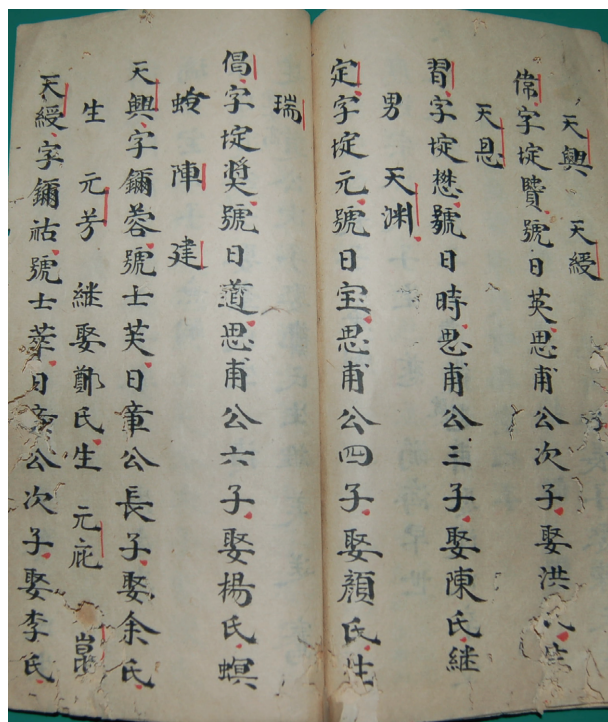 天興 天綬
偉字埞賢號日英思甫公次子娶洪氏生
天恩
習字埞懋號日時思甫公三子娶陳氏継
男 天渊
定字埞元號日宝思甫公四子娶顏氏生
瑞
倡字埞奨號日道思甫公六子娶楊氏螟
蛉 陣 建
天興字鑈蓉號士芙日章公長子娶余氏
生 元芳 継娶鄭氏生 元庇
天綬字鑈祜號士莘日章公次子娶李氏